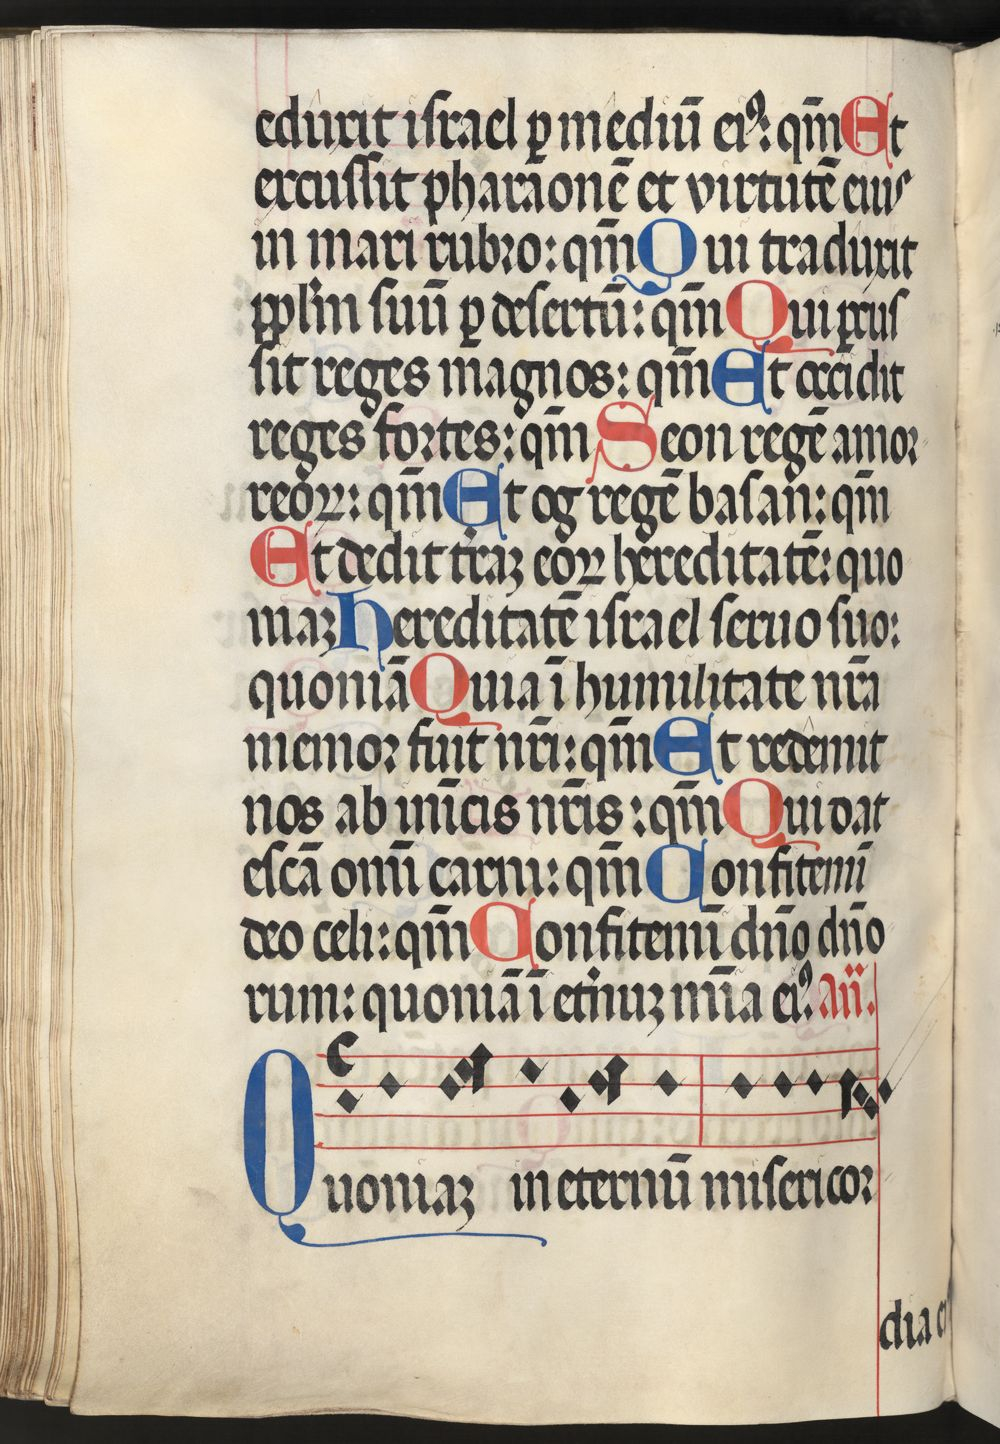 eduxit israel ꝑ mediū eiꝰ: qm̄ Et
excussit pharaonē et virtutē eius
in mari rubro: qm̄ Qui traduxit
pplm̄ suū ꝑ desertū: qm̄ Qui ꝑcus
sit reges magnos: qm̄ Et occidit
reges fortes: qm̄ Seon regē amor
reoꝝ: qm̄ Et og regē basan: qm̄
Et dedit trāꝫ eoꝝ hereditatē: quo
niaꝫ Hereditatē israel seruo suo:
quoniā Quia ī humilitate nr̄a
memor fuit nr̄i: qm̄ Et redemit
nos ab inīcis nr̄is: qm̄ Qui dat
escā omī carni: qm̄ Confitemī
deo celi: qm̄ Confitemī dn̄o dn̄o
rum: quoniā ī etr̄nuꝫ mīa eiꝰ an̄.
Quoniaꝫ in eternū misericor
dia e